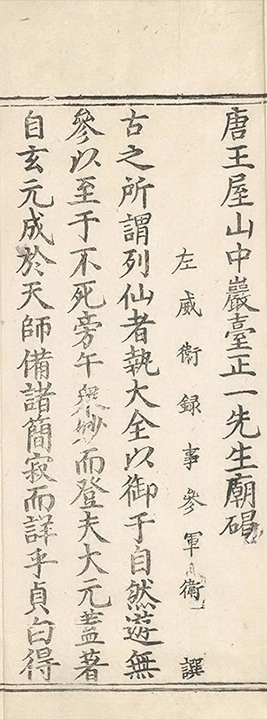 唐王屋山中巖臺正一先生廟碣
左威衛録事參軍衛 譔
古之所謂列仙者執大全以御于自然遊無
參以至于不死旁午衆妙而登夫大元蓋著
自玄元成於天師備諸簡寂而詳乎貞白得